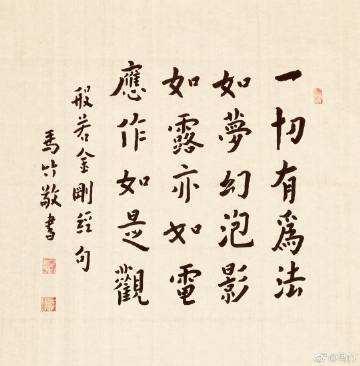 一切有為法
如夢幻泡影
如露亦如電
應作如是觀
般若金剛經句
馬 敬書